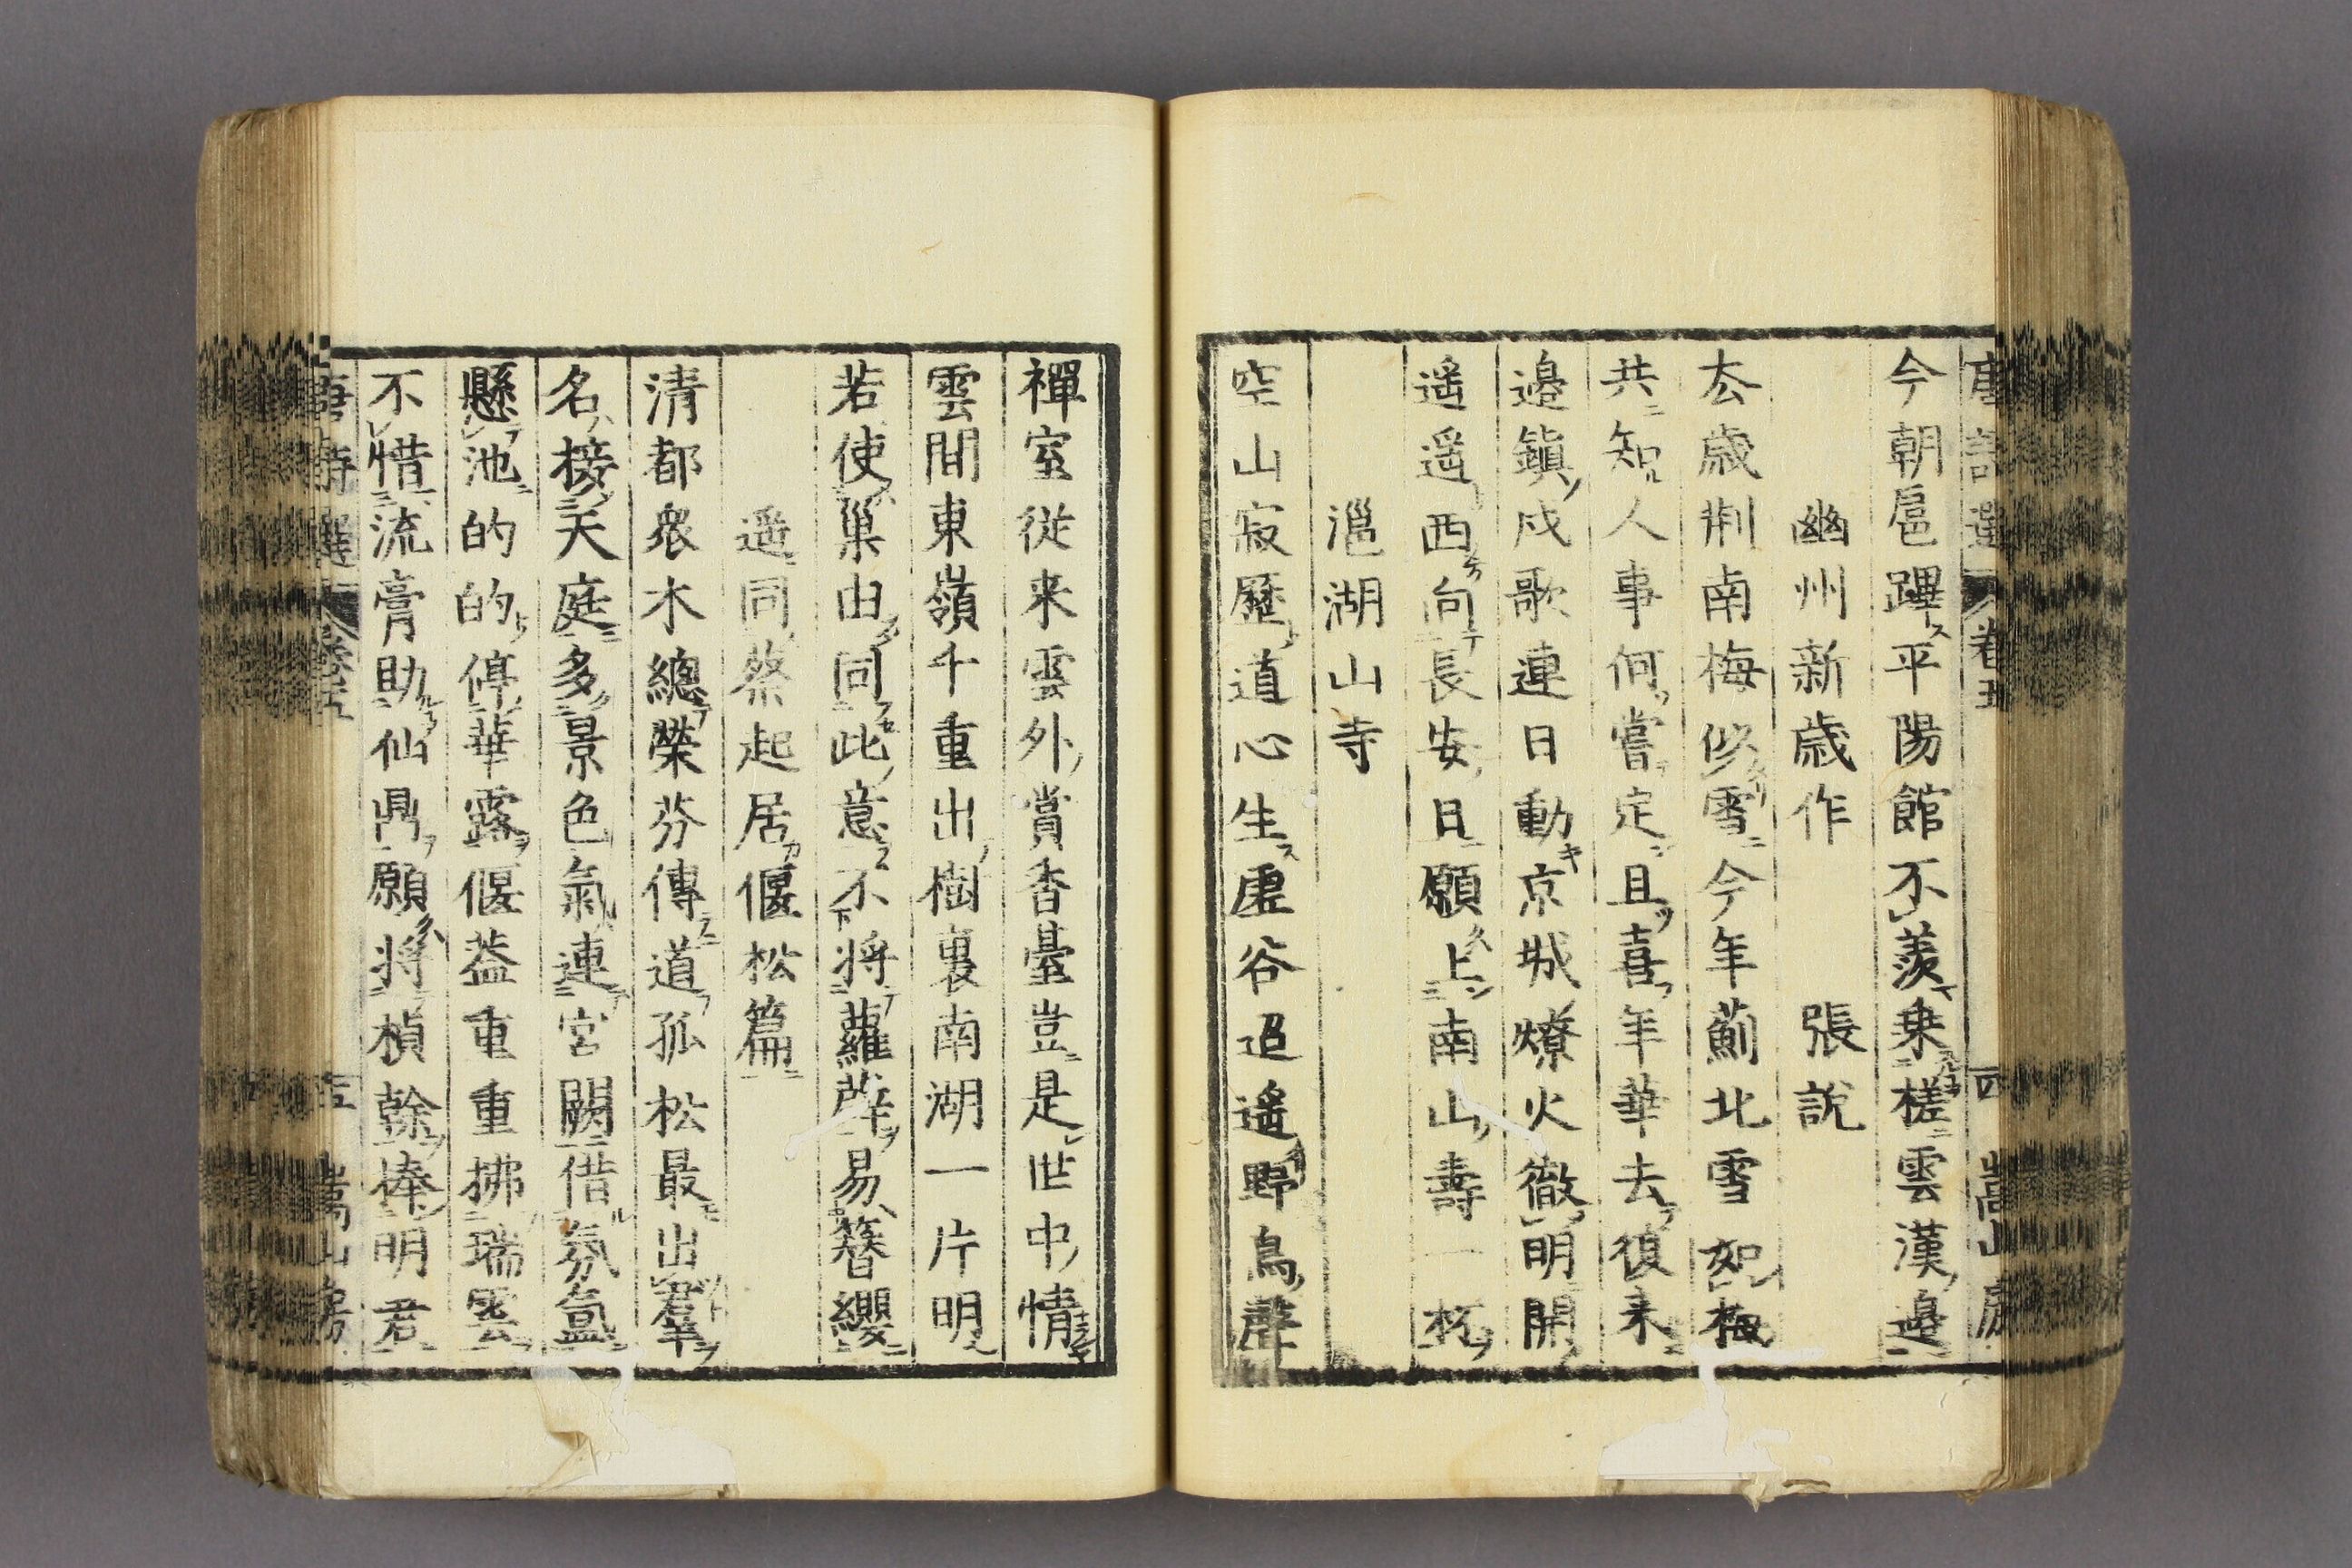 唐詩選 卷五 四 嵩山房
今朝扈蹕平陽館不羨乗槎雲漢邉
幽州新歳作 張說
厺歳荆南梅似雪今年薊北雪如梅
共知人事何嘗定且喜年華去復来
邉鎮戍歌連日動京城燎火徹明開
遥遥西向長安日願上南山壽一杯
㴩湖山寺
空山寂歷道心生虚谷迢遥野鳥聲
禪室從来雲外賞香臺豈是世中情
雲間東嶺千重出樹裏南湖一片明
若使巢由同此意不將蘿薜易簪纓
遥同蔡起居偃松篇
清都衆木總榮芬傳道孤松最出羣
名接天庭多景色氣連宮闕借氛氳
懸池的的停華露偃葢重重拂瑞雲
不惜流膏助仙鼎願將楨榦捧明君
唐詩選 卷五 五 嵩山房